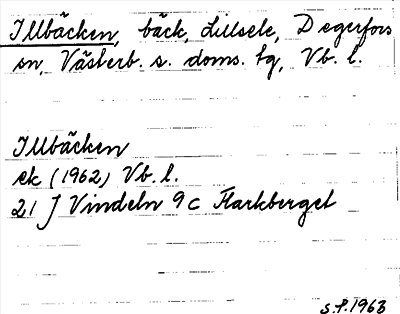 Illbäcken, bäck, Lillsele, Degerfors
sn, Västerb. s. doms. tg, Vb. l.
Illbäcken
ek (1962) Vb. l.
21 J Vindeln 9c Harkberget
S.P. 1963